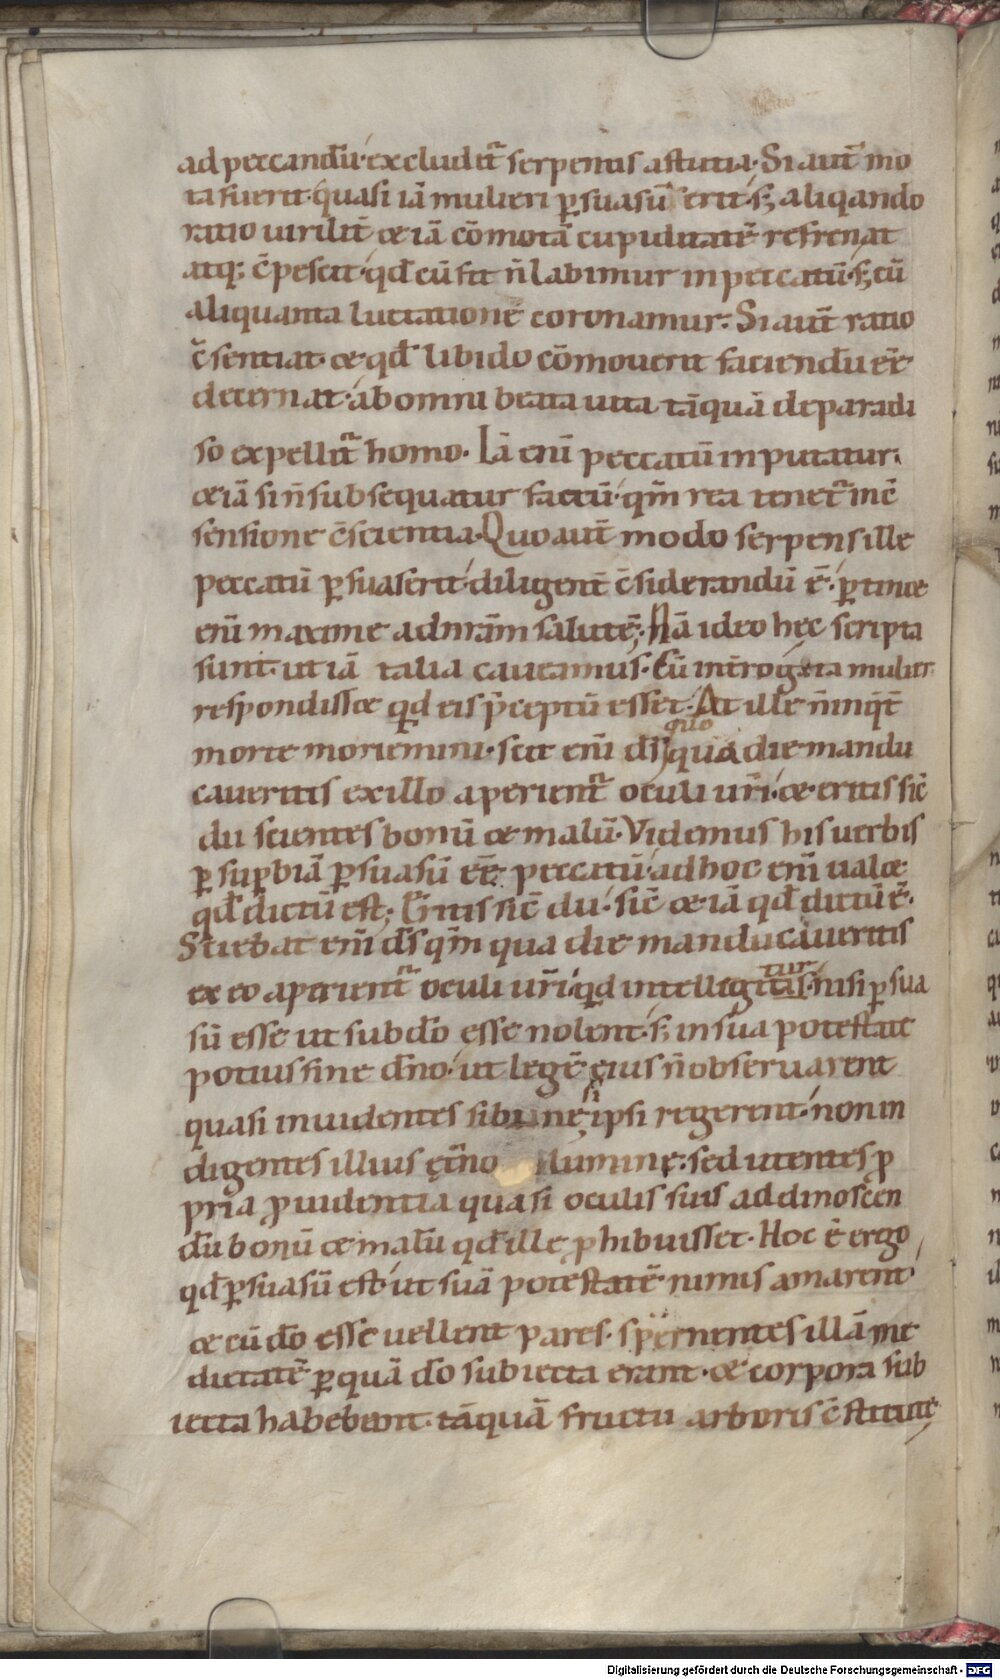 ad peccandū· excludit᷑ serpentis astutia· Si aut̄ mo
ta fuerit· quasi iā mulieri ꝑsuasū erit· sꝫ aliqando
ratio uirilit̄ & iā cōmotā cupiditatē refrenat
atq; c̄pescit· qđ cū fit n̄ labimur in peccatū· sꝫ cū
aliquanta luctatione coronamur· Si aut̄ ratio
c̄sentiat· & qđ libido cōmouerit faciendū eē
decernat· ab omni beata uita tāquā de paradi
so expellit᷑ homo· Iā enī peccatū inputatur·
& iā si n̄ subsequatur factū· qm̄ rea tenet᷑ in c̄
sensione c̄scientia· Quo aut̄ modo serpens ille
peccatū ꝑsuaserit· diligent̄ c̄siderandū ē· ꝑtin&
enī maxime ad nr̄am salutē· Nā ideo hęc scripta
sunt· ut iā talia caueamus· Cū int̄rogata mulier
respondiss& qđ eis p̄ceptū esset· At ille n̄ inq̄t
morte moriemini· scit enī dſ̄ quo qua die mandu
caueritis ex illo aperient᷑ oculi ur̄i· & eritis sic̄
dii scientes bonū & malū· Videmus his uerbis
ꝑ suꝑbiā ꝑsuasū eē peccatū· ad hoc enī ual&
qđ dictū est· Eritis sic̄ dii· sic̄ & iā qđ dictū ē·
Sciebat enī dſ̄ qm̄ qua die manducaueritis
ex eo aperient᷑ oculi ur̄i· qđ intellegitis tur nisi ꝑsua
sū esse ut sub dō esse nolent· sꝫ in sua potestate
potius sine dn̄o· ut legē eius n̄ obseruarent
quasi inuidentes sibi ne si ipsi regerent· non in
digentes illius ęt̄no lumine· sed utentes ꝓ
pria ꝓuidentia quasi oculis suis ad dinoscen
dū bonū & malū qđ ille ꝓhibuisset· Hoc ē ergo
qđ ꝑsuasū est· ut suā potestatē nimis amarent·
& cū dō esse uellent pares· spernentes illā me
dietatē ꝑ quā dō subiecta erant· & corpora sub
iecta habebant· tāquā fructu arboris c̄stitutę